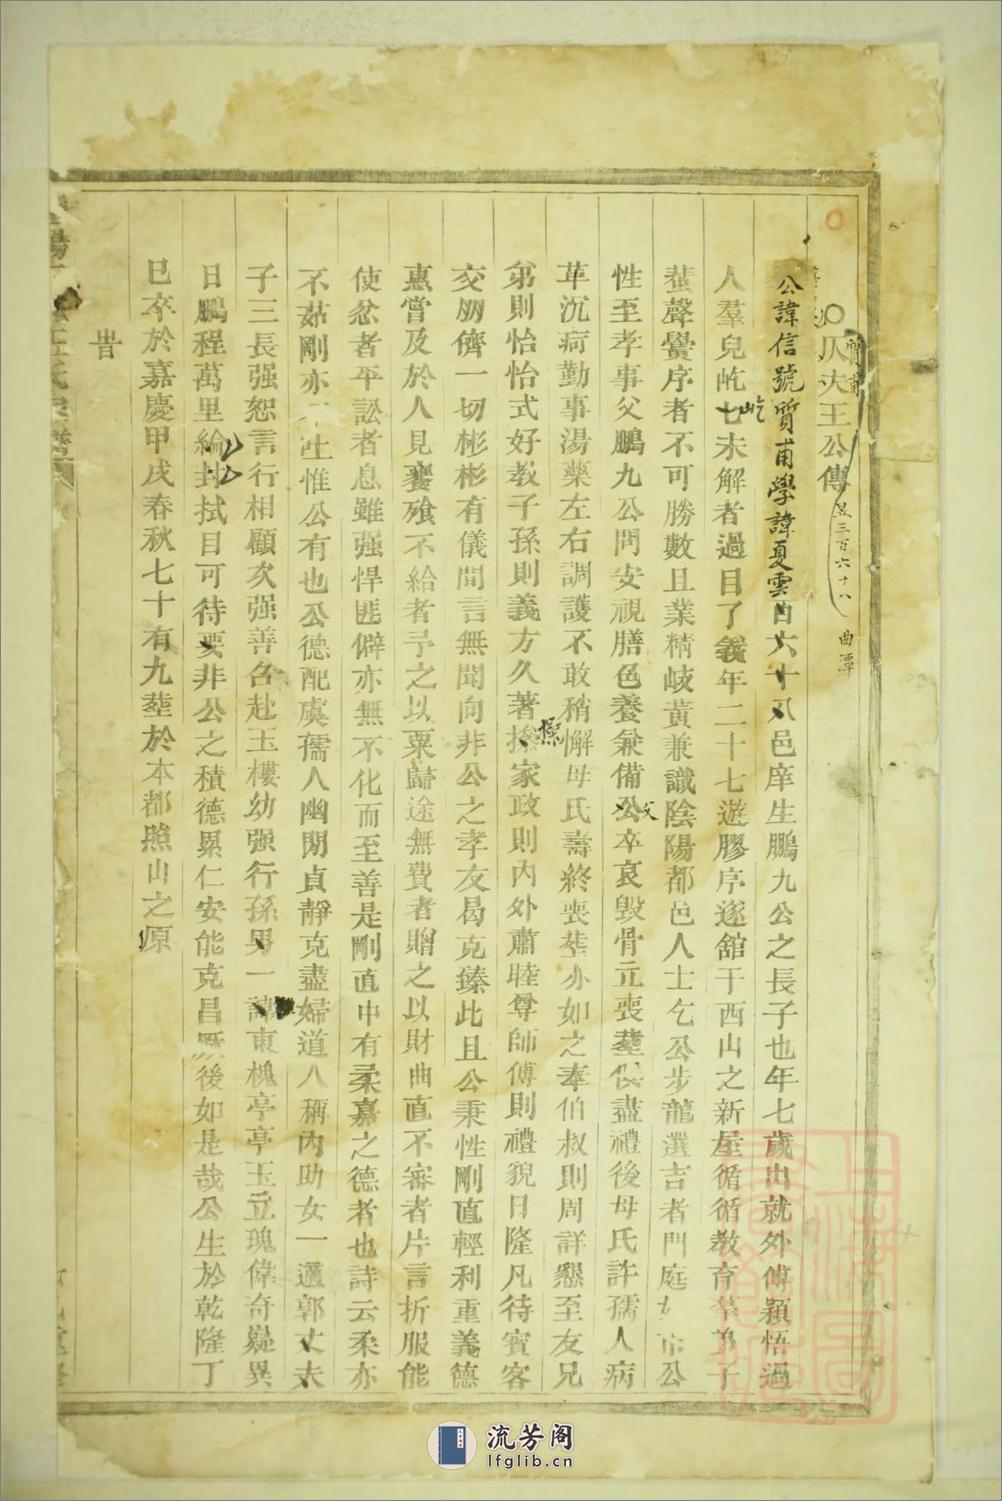 質甫
夫王公傳
三百六十八
曲潭
公諱信號質甫學諱夏雲 六十八邑庠生鵬九公之長子也年七歲出就外傅穎悟過
人羣兒屹七未解者過目了義年二十七遊膠序遂舘于西山之新屋循循教育羣弟子
屹
蜚聲黌序者不可勝數且業精岐黃兼識陰陽都邑人士乞公步龍選吉者門庭如市公
性至孝事父鵬九公問安視膳色養兼備公卒哀毀骨立喪葬 盡禮後母氏許孺人病
父
革沉疴勤事湯藥左右調護不敢稍懈母氏壽終喪塟亦如之奉伯叔則周詳懇至友兄
弟則怡怡式好教子孫則義方久著操家政則内外肅睦尊師傅則禮貌日隆凡待賓客
操
交朋儕一切彬彬有儀間言無聞向非公之孝友曷克臻此且公秉性剛直輕利重義德
惠嘗及於人見饔飧不給者予之以粟歸途無費者贈之以財曲直不審者片言折服能
使忿者平訟者息雖强悍匪僻亦無不化而至善是剛直中有柔嘉之德者也詩云柔亦
不茹剛亦不吐惟公有也公德配虞孺人幽閒貞靜克盡婦道人稱内助女一適郭丈夫
子三長强恕言行相顧次强善名赴玉樓幼强行孫男一諱東槐亭亭玉立瑰偉奇嶷異
日鵬程萬里綸封拭目可待要非公之積德累仁安能克昌厥後如是哉公生於乾隆丁
巳卒於嘉慶甲戌春秋七十有九塟於本都照山之原
旹
王氏宗譜
上海圖書館藏
流芳阁
lfglib.cn